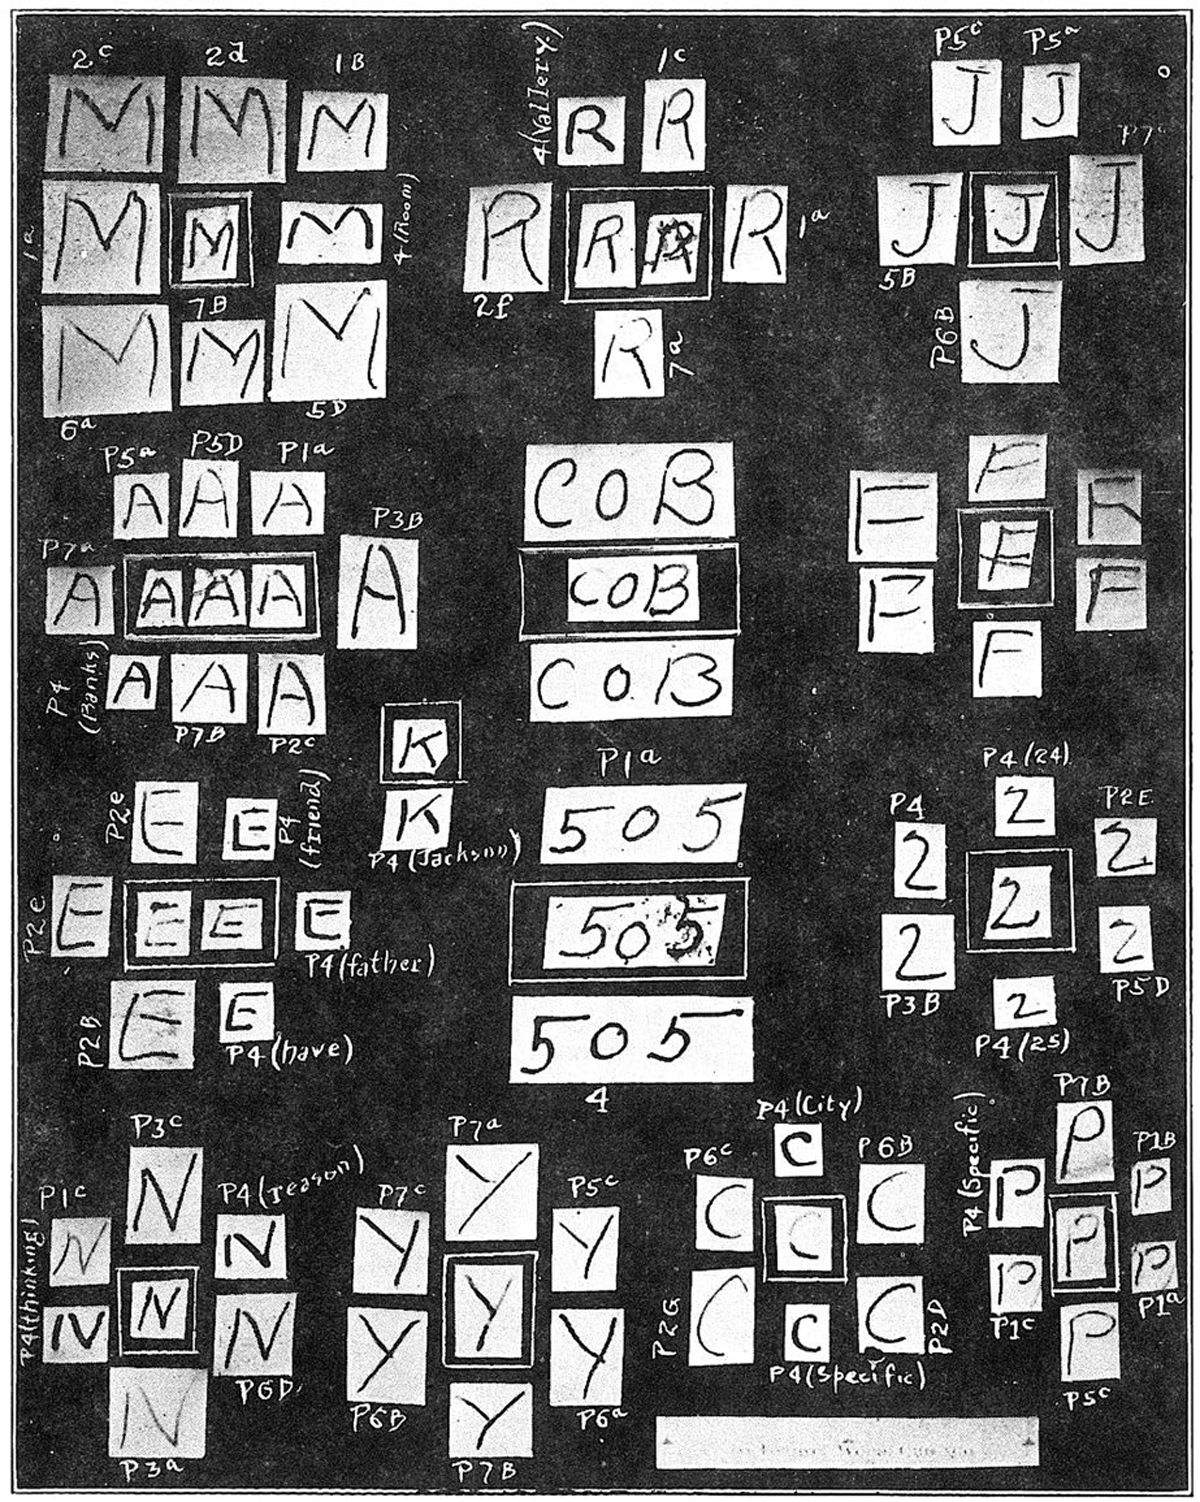 2c 2d 1B
M M M
1a M M M 4(Room)
7B
M M M
6a 5D
4(Vallery) 1c
R R
R R R R 1a
2f
R 7a
P5c P5a
J J
P7c
J J J
5B
P6B J
P5a P5D P1a
A A A
P7a P3B
A A A A A
P4 (Banks) A A A
P7B P2c
COB
COB
COB
F
F F
F
F F
F
K
K
P4 (Jackson)
P2e E E P4 (friend)
P2e E E E E
P4 (father)
P2B E E
P4 (have)
P1a
505
505
505
4
P4 (24)
P4 2 P2E
2 2
2
2 2
P3B 2 P5D
P4 (25)
P3c
P1c N P4 (reason)
N N
P4 (thinking) N N N
P6D
N
P3a
P7a
P7c Y P5c
Y Y
Y
Y Y
P6B Y P6a
P7B
P4 (City)
P6c C P6B
C C
C
P2G C C C P2D
P4 (Specific)
P7B
P4 (Specific) P P1B
P P
P
P P
P1c P P1a
P5c